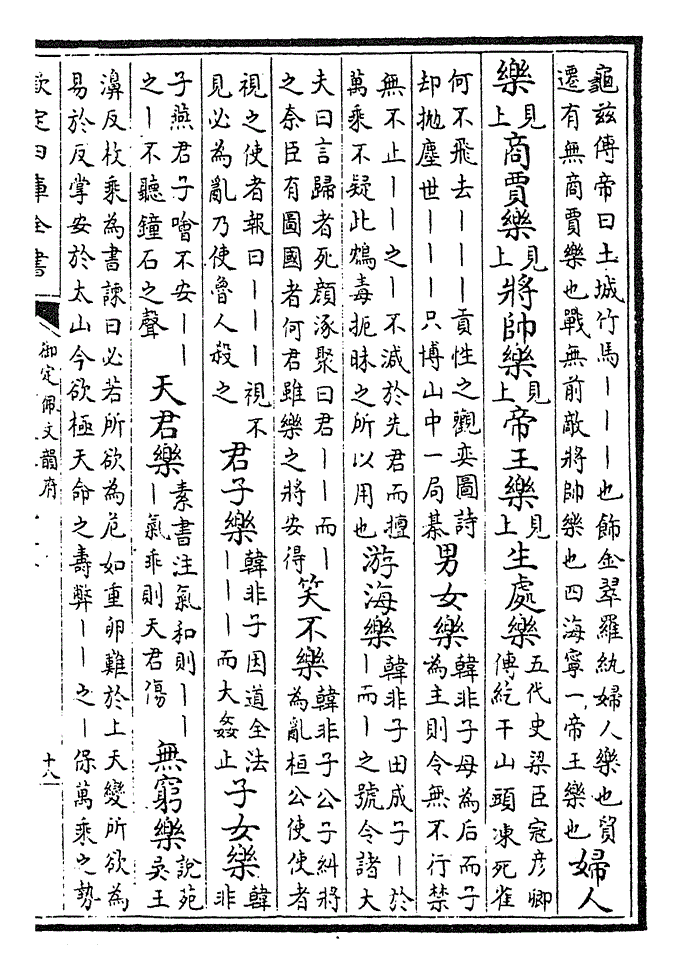 龜兹傅帝曰土城竹馬丨丨丨也飾金翠羅紈婦人樂也貿
遷有無商賈樂也戰無前敵將帥樂也四海寧一帝王樂也婦人
樂見上商賈樂見上將帥樂見上帝王樂見上生處樂五代史梁臣寇彦卿
傳紇干山頭凍死雀
何不飛去丨丨丨貢性之觀奕圖詩
却抛塵世丨丨丨只博山中一局棊男女樂韓非子母為后而子
為主則令無不行禁
無不止丨丨之丨不減於先君而擅
萬乘不疑此鴆毒扼昧之所以用也游海樂韓非子田成子丨於
丨而丨之號令諸大
夫曰言歸者死顔涿聚曰君丨丨而丨
之奈臣有圖國者何君雖樂之將安得笑不樂韓非子公子糾將
為亂桓公使使者
視之使者報曰丨丨丨視不
見必為亂乃使魯人殺之君子樂韓非子因道全法
丨丨丨而大姦止子女樂韓
非
子燕君子噲不安丨丨
之丨不聽鐘石之聲天君樂素書注氣和則丨丨
丨氣乖則天君傷無窮樂說苑
吳王
濞反枚乘為書諫曰必若所欲為危如重卵難於上天變所欲為
易於反掌安於太山今欲極天命之壽弊丨丨之丨保萬乘之勢
欽定四庫全書
御定佩文韻府
十八